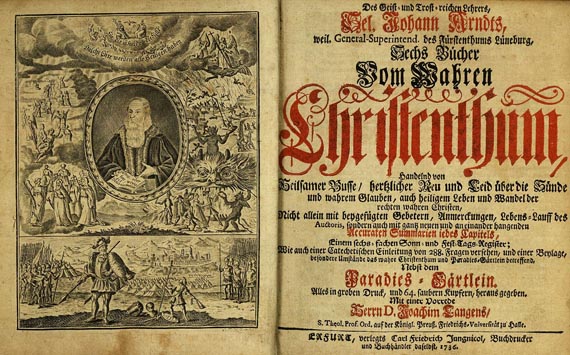 Des Geist- und Trost-reichen Lehrers,
Sel. Johann Arndts,
weil. General-Superintend. des Fürstenthums Lüneburg,
Sechs Bücher
Vom Wahren
Christenthum,
Handelnd von
Heilsamer Busse/ hertzlicher Reu und Leid über die Sünde
und wahrem Glauben, auch heiligem Leben und Wandel der
rechten wahren Christen,
Nicht allein mit beygefügten Gebetern, Anmerckungen, Lebens-Lauff des
Auctoris, sondern auch mit gantz neuen und an einander hangenden
Accuraten Summarien jedes Capitels,
Einem sechs-fachen Sonn- und Fest-Tags-Register;
Wie auch einer Catechetischen Einleitung von 288. Fragen versehen, und einer Beylage,
besondere Umstände das wahre Christenthum und Paradies-Gärtlein betreffend,
Nebst dem
Paradies-Gärtlein.
Alles in groben Druck, und 64. saubern Kupfern, heraus gegeben.
Mit einer Vorrede
Herrn D. Joachim Langens,
S. Theol. Prof. Ord. auf der Königl. Preuß. Friedrichs-Universität zu Halle.
ERFURT, verlegts Carl Friedrich Jungnicol, Buchdrucker
und Buchhändler daselbst, 1736.